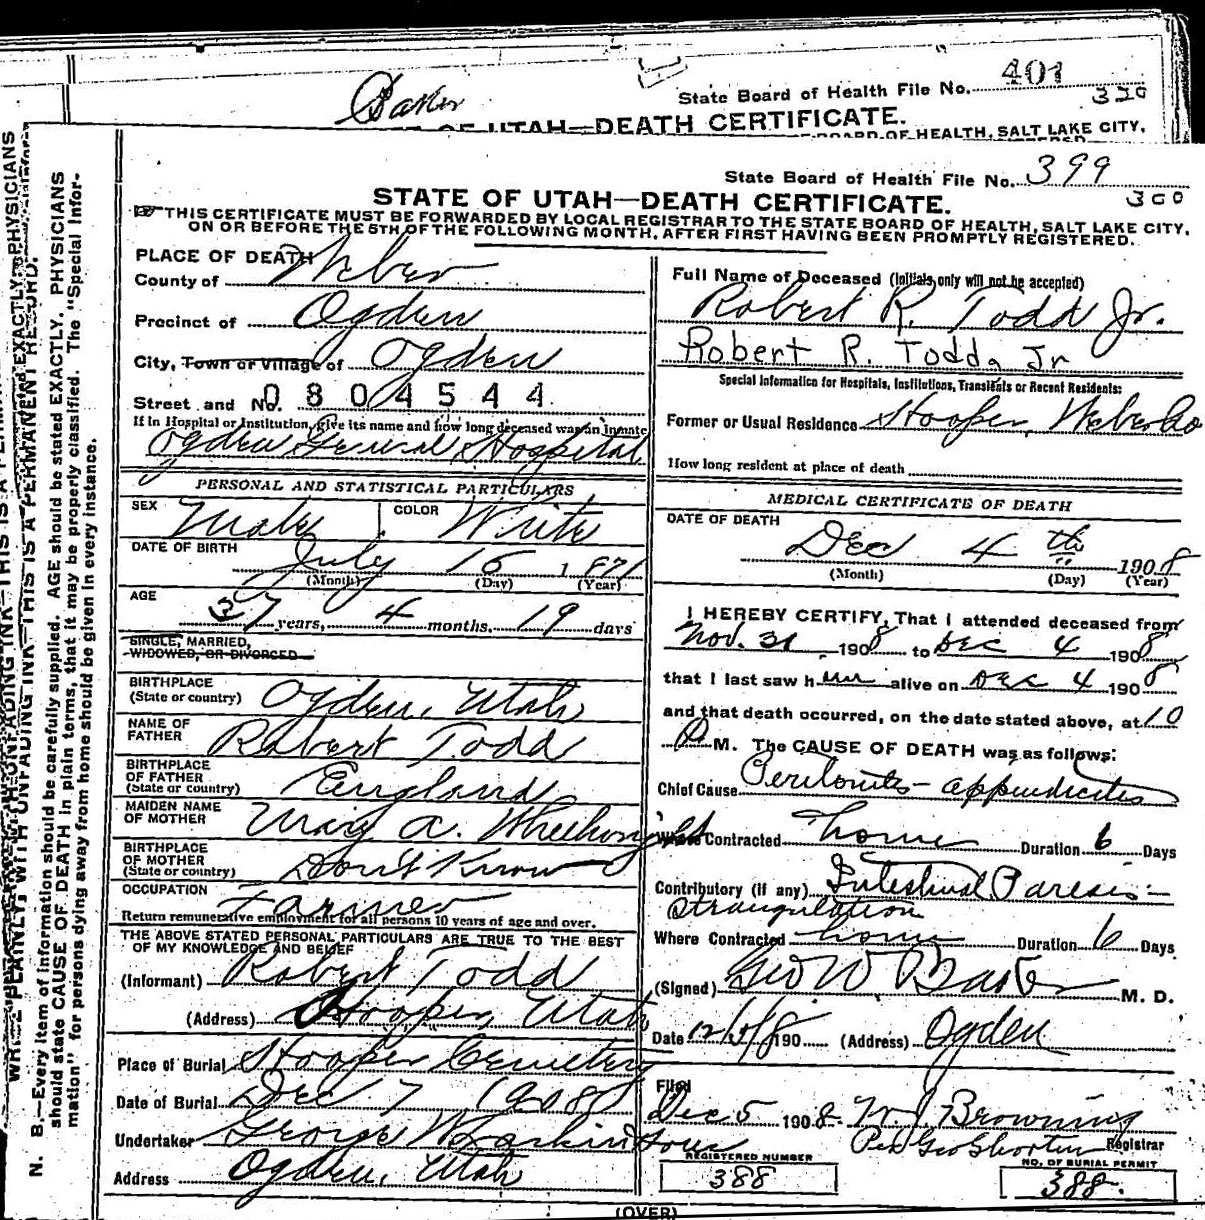 Baker
State Board of Health File No. 401
320
OF UTAH—DEATH CERTIFICATE.
BOARD OF HEALTH, SALT LAKE CITY,
State Board of Health File No. 399
360
STATE OF UTAH—DEATH CERTIFICATE.
THIS CERTIFICATE MUST BE FORWARDED BY LOCAL REGISTRAR TO THE STATE BOARD OF HEALTH, SALT LAKE CITY,
ON OR BEFORE THE 5TH OF THE FOLLOWING MONTH, AFTER FIRST HAVING BEEN PROMPTLY REGISTERED.
PLACE OF DEATH
County of Weber
Precinct of Ogden
City, Town or Village of Ogden
Street and No. 0804544
If in Hospital or Institution, give its name and how long deceased was an inmate
Ogden General Hospital
PERSONAL AND STATISTICAL PARTICULARS
SEX Male COLOR White
DATE OF BIRTH July 16 1871
(Month) (Day) (Year)
AGE
37 years, 4 months. 19 days
SINGLE, MARRIED,
WIDOWED, OR DIVORCED
BIRTHPLACE
(State or country) Ogden, Utah
NAME OF
FATHER Robert Todd
BIRTHPLACE
OF FATHER
(State or country) England
MAIDEN NAME
OF MOTHER Mary A.
BIRTHPLACE
OF MOTHER
(State or country) Don't Know
OCCUPATION Farmer
Return remunerative employment for all persons 10 years of age and over.
THE ABOVE STATED PERSONAL PARTICULARS ARE TRUE TO THE BEST
OF MY KNOWLEDGE AND BELIEF
(Informant) Robert Todd
(Address) Hooper, Utah
Place of Burial Hooper Cemetery
Date of Burial Dec 7 1908
Undertaker George W Larkin & Sons
Address Ogden, Utah
Full Name of Deceased (Initials only will not be accepted)
Robert R. Todd Jr.
Robert R. Todd, Jr
Special Information for Hospitals, Institutions, Transients or Recent Residents:
Former or Usual Residence Hooper, Weber Co
How long resident at place of death
MEDICAL CERTIFICATE OF DEATH
DATE OF DEATH
Dec 4th 1908
(Month) (Day) (Year)
I HEREBY CERTIFY, That I attended deceased from
Nov. 31 1908 to Dec 4 1908
that I last saw him alive on Dec 4 1908
and that death occurred, on the date stated above, at 10
P M. The CAUSE OF DEATH was as follows:
Chief Cause Peritonites - appendicites
Where Contracted home Duration 6 Days
Contributory (if any) Intestinal Paresis -
strangulation
Where Contracted home Duration 6 Days
(Signed) Geo W Baker M. D.
Date 12/5/8 190 (Address) Ogden
Filed
Dec 5 1908 W J Browning
Per Geo Shorten Registrar
REGISTERED NUMBER
388
NO. OF BURIAL PERMIT
388.
(OVER)
WRITE PLAINLY, WITH UNFADING INK—THIS IS A PERMANENT RECORD.
N. B.—Every item of information should be carefully supplied. AGE should be stated EXACTLY. PHYSICIANS
should state CAUSE OF DEATH in plain terms, that it may be properly classified. The "Special Infor-
mation" for persons dying away from home should be given in every instance.